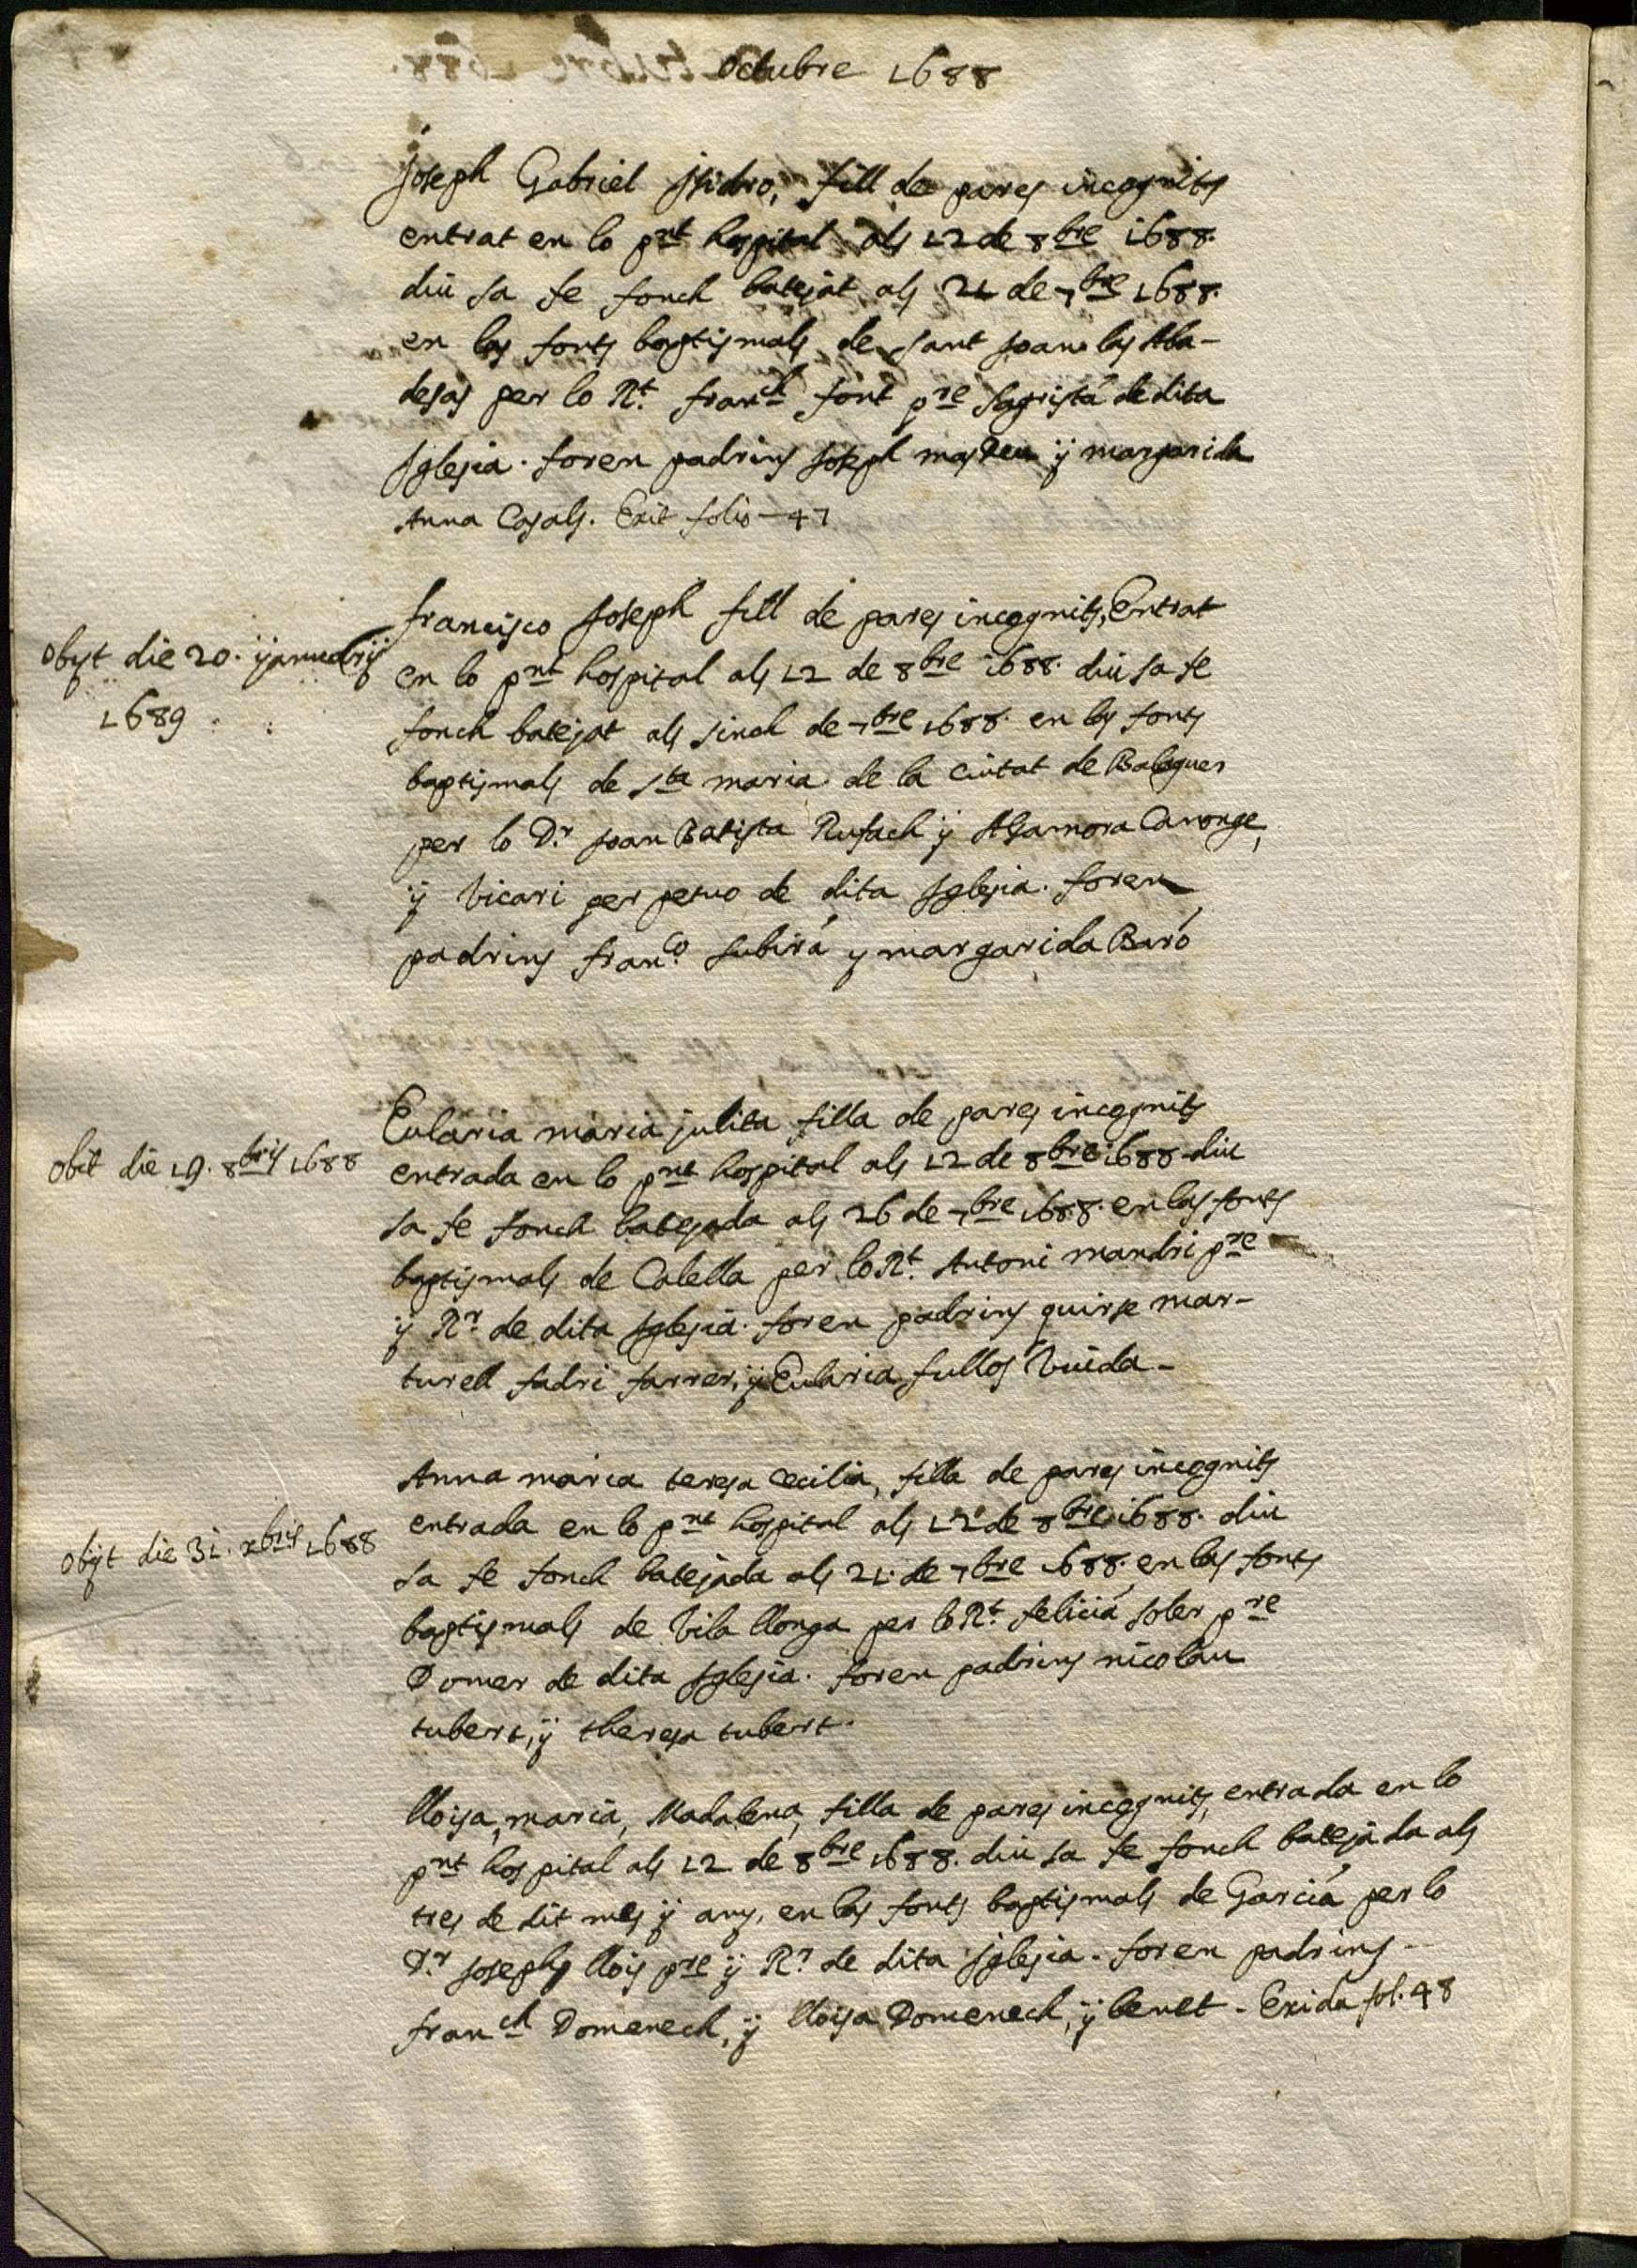 Octubre 1688
Joseph Gabriel Isidro, fill de pares incognits
entrat en lo pnt hospital als 12 de 8bre 1688.
diu sa fe fonch batejat als 21 de 7bre 1688.
en las fonts baptismals de sant Joan las Aba-
desas per lo Rt. franch font pre sagristá de dita
Iglesia. foren padrins Joseph masdeu ÿ margarida
Anna Casals. Exit folio - 47
francisco Joseph fill de pares incognits, Entrat
en lo pnt hospital als 12 de 8bre 1688. diu sa fe
fonch batejat als sinch de 7bre 1688. en las fonts
baptismals de sta maria de la ciutat de Balaguer
per lo Dr. Joan Batista Rufach ÿ Algamora Canonge,
ÿ Vicari perpetuo de dita Iglesia. foren
padrins franco. subirá y margarida Baró
obyt die 20. ÿanuarÿ
1689
Eularia maria julita filla de pares incognits
entrada en lo pnt hospital als 12 de 8bre 1688 diu
sa fe fonch batejada als 26 de 7bre 1688. en las fonts
baptismals de Calella per lo Rt. Antoni mandri pre
ÿ Rr. de dita Iglesia. foren padrins quirse mar-
turell fadri farrer, ÿ Eularia fullos Viuda -
obit die 19. 8bris 1688
Anna maria teresa Cecilia, filla de pares incognits
entrada en lo pnt hospital als 12 de 8bre 1688. diu
sa fe fonch batejada als 21. de 7bre 1688. en las fonts
baptismals de Vila llonga per lo Rt. feliciá soler pre
Domer de dita Iglesia. foren padrins nicolau
tubert, ÿ theresa tubert.
obÿt die 31. xbris 1688
lloisa, maria, Madalena, filla de pares incognits, entrada en lo
pnt hospital als 12 de 8bre 1688. diu sa fe fonch batejada als
tres de dit mes ÿ any, en las fonts baptismals de Garciá per lo
Dr. Joseph llois pre ÿ Rr. de dita Iglesia. foren padrins -
franch Domenech, ÿ lloisa Domenech, ÿ benet - Exida fol. 48